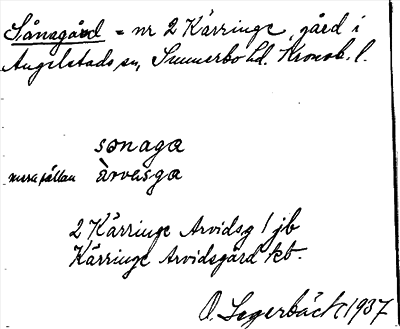 Sånagård = nr 2 Kärringe, gård i
Angelstads sn, Sunnerbo hd. Kronob. l.
sonaga
mera sällan àrvesga
2 Kärringe Arvidsg 1 jb
Kärringe Arvidsgård kb.
O. Segerbäck 1937